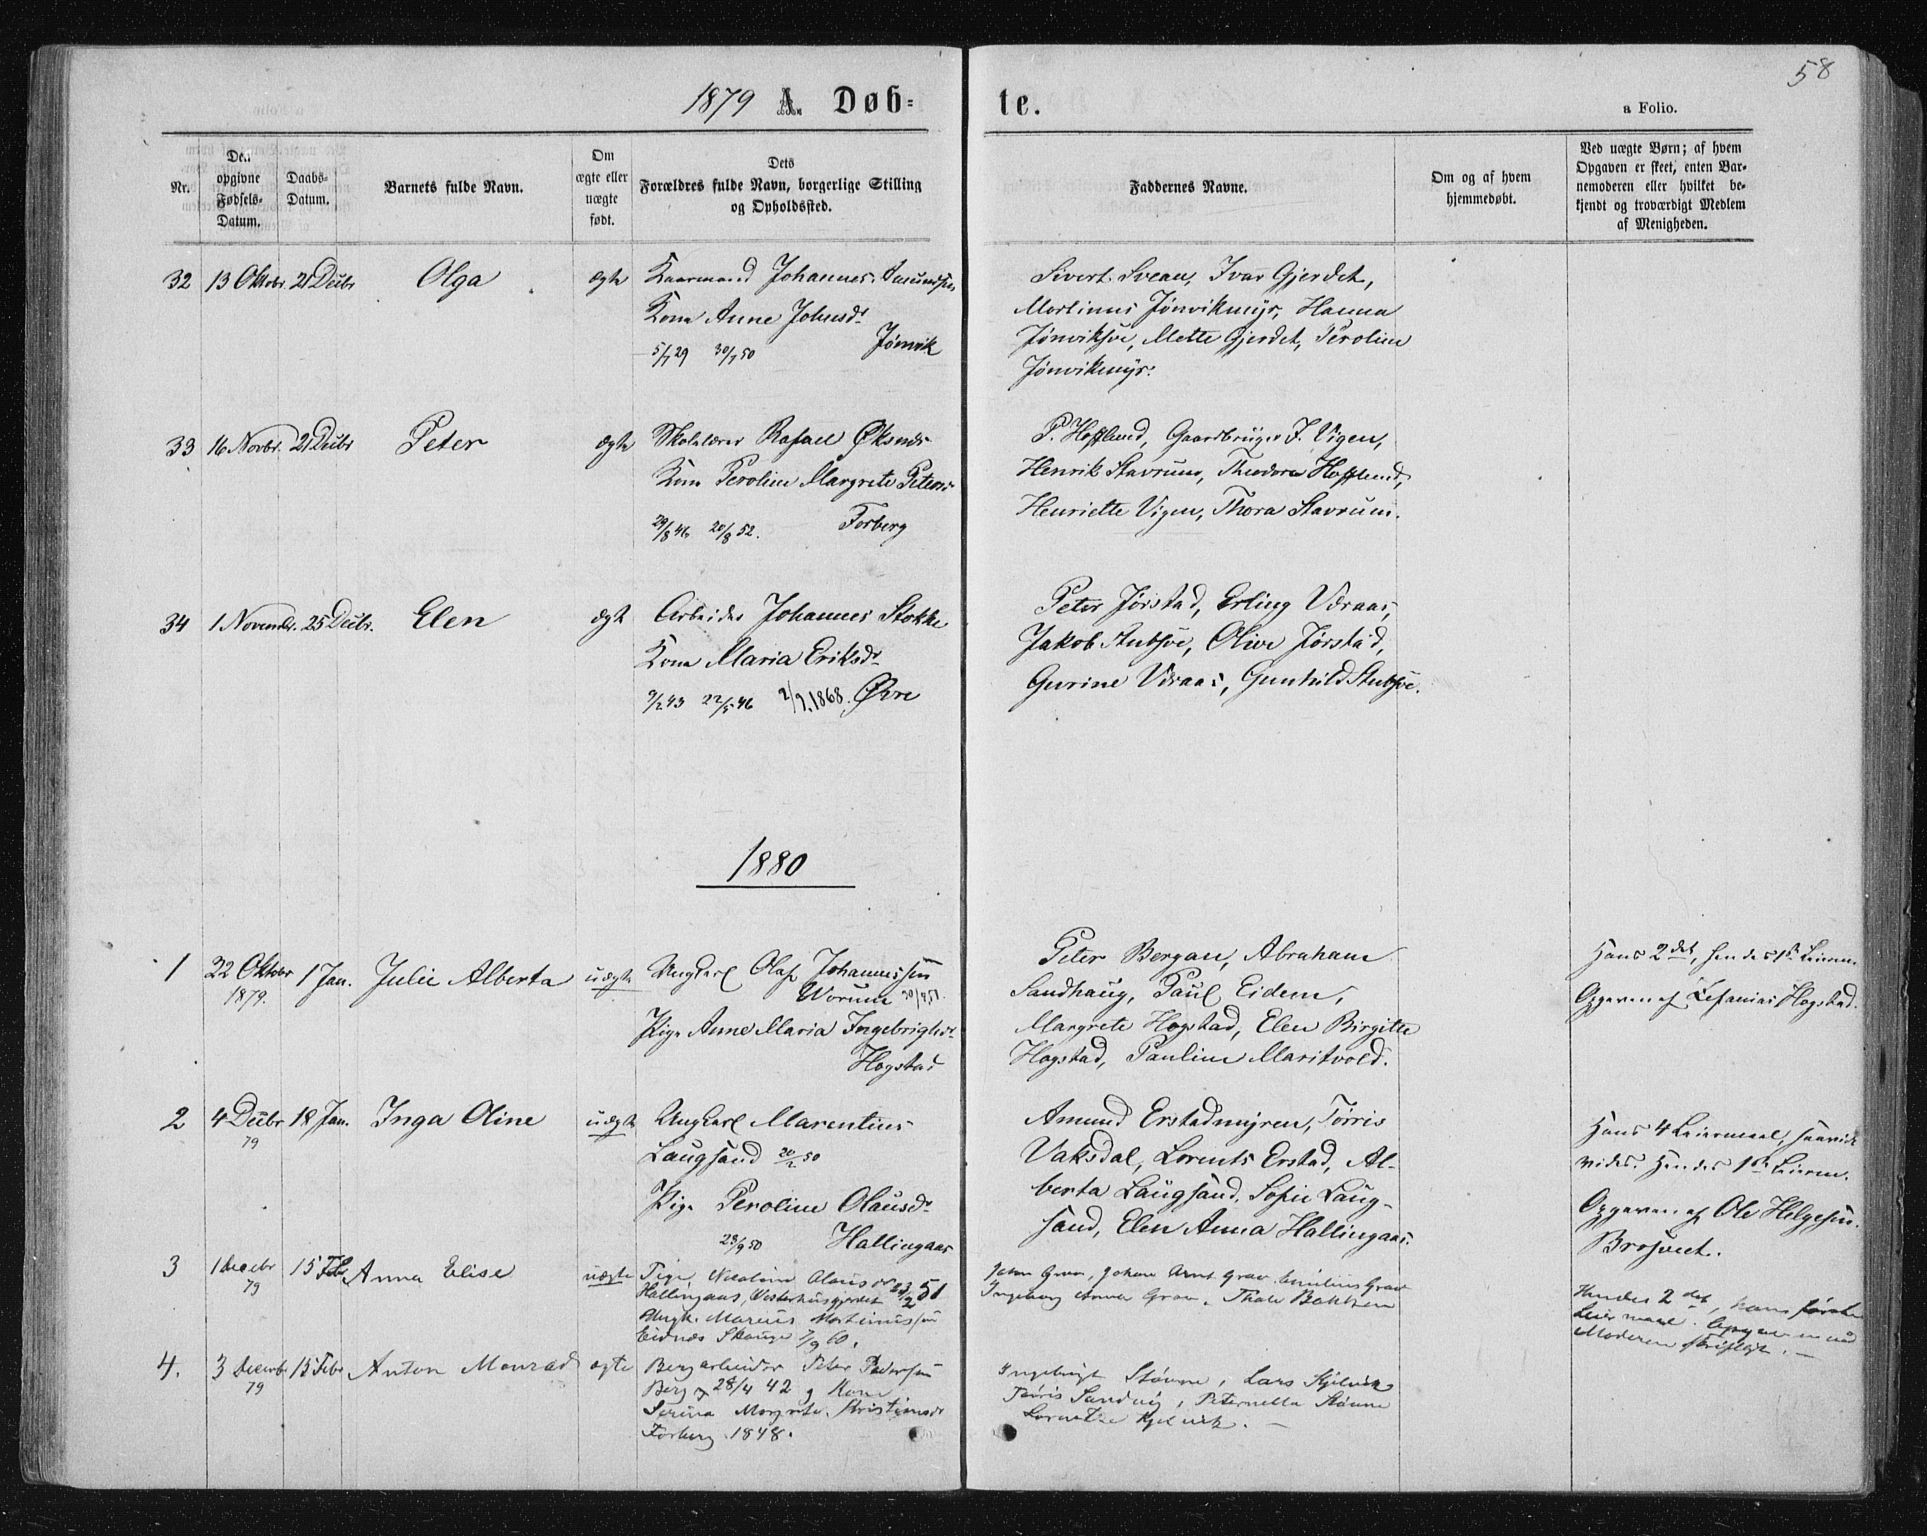 58
1879 A. Døb-
te.
a Folio.
Nr.
Den opgivne Fødsels-Datum.
Daabs-Datum.
Barnets fulde Navn.
Om ægte eller uægte født.
Dets Forældres fulde Navn, borgerlige Stilling og Opholdssted.
Faddernes Navne.
Om og af hvem hjemmedøbt.
Ved uægte Børn; af hvem Opgaven er skeet, enten Barnemoderen eller hvilket bekjendt og troværdigt Medlem af Menigheden.
32 13 Oktobr. 21 Decbr Olga ægte Gaarmand Johannes
Kone Anne Johnsdr
5/7 29 30/7 50 Jønvik
Sivert Svean, Ivar Gjerdet,
Martinus Jønvikmyr, Hanna
Jønviksve, Mette Gjerdet, Peroline
Jønvikmyr.
33 16 Novbr. 21 Decbr Peter ægte Skolelærer Rafael Øksnes
Kone Peroline Margrete Petersd
29/8 46 20/8 52. Forberg
P. Hofflund, Gaardbruger J. Vigen,
Henrik Stavrum, Theodora Hofflund,
Henriette Vigen, Thora Stavrum.
34 1 November. 25 Decbr. Elen ægte Arbeider Johannes Stokke
Kone Maria Eriksdr
9/2 43 22/5 46 2/9. 1868. Øvre
Peter Jørstad, Erling Udraas,
Jakob Stubsve, Olive Jørstad,
Gurine Udraas, Gunhild Stubsve.
1880
1 22 Oktober 1879. 1 Jan. Julie Alberta uægte Ungkarl Olaf Johannessen
Worum
Pige Anne Maria Ingebrigtsdr
Hogstad
Peter Bergan, Abraham
Sandhaug, Paul Eidem,
Margrete Hogstad, Elen Birgitte
Hogstad, Pauline Maritvold.
Hans 2det, hendes 1ste Leierm.
Opgaven af Zefanias Hogstad.
2 4 Decbr 79 18 Jan. Inga Oline uægte Ungkarl Marentius
Laugsand 20/2 50
Pige Peroline Olausdr
23/9 50 Hallingaas
Amund Erstadmyren, Tørris
Vaksdal, Lorents Erstad, Al-
berta Laugsand, Sofie Laug-
sand, Elen Anna Hallingaas.
Hans 4 Leiermaal, saavidt
vides. Hendes 1ste Leierm.
Opgaven af Ole Helgesen
Brosveet.
3 1 Decebr 79 15 Febr Anna Elise uægte Pige, Nicoline Olausdr 23/2 51
Hallingaas, Westerhusgjerdet
Ungk. Marius Martinussen
Eidnes Skauge 7/9 60.
Johan Grav, Johan Arnt Grav, Emilius Grav
Ingeborg Anna Grav, Thale Bakken
Hendes 2det, hans første
Leiermaal. Opgaven ved
Moderen skriftligt. —
4. 3 Decembr 79 15 Febr Anton Monrad ægte Bergarbeider Peter Pedersen
Berg 28/4 42 og Kone
Serina Margrete Kristiansdr
Forberg 1848.
Ingebrigt Støvne, Lars Kjelvik
Tøris Sandvig, Peternella Støvne
Kjelvik. —